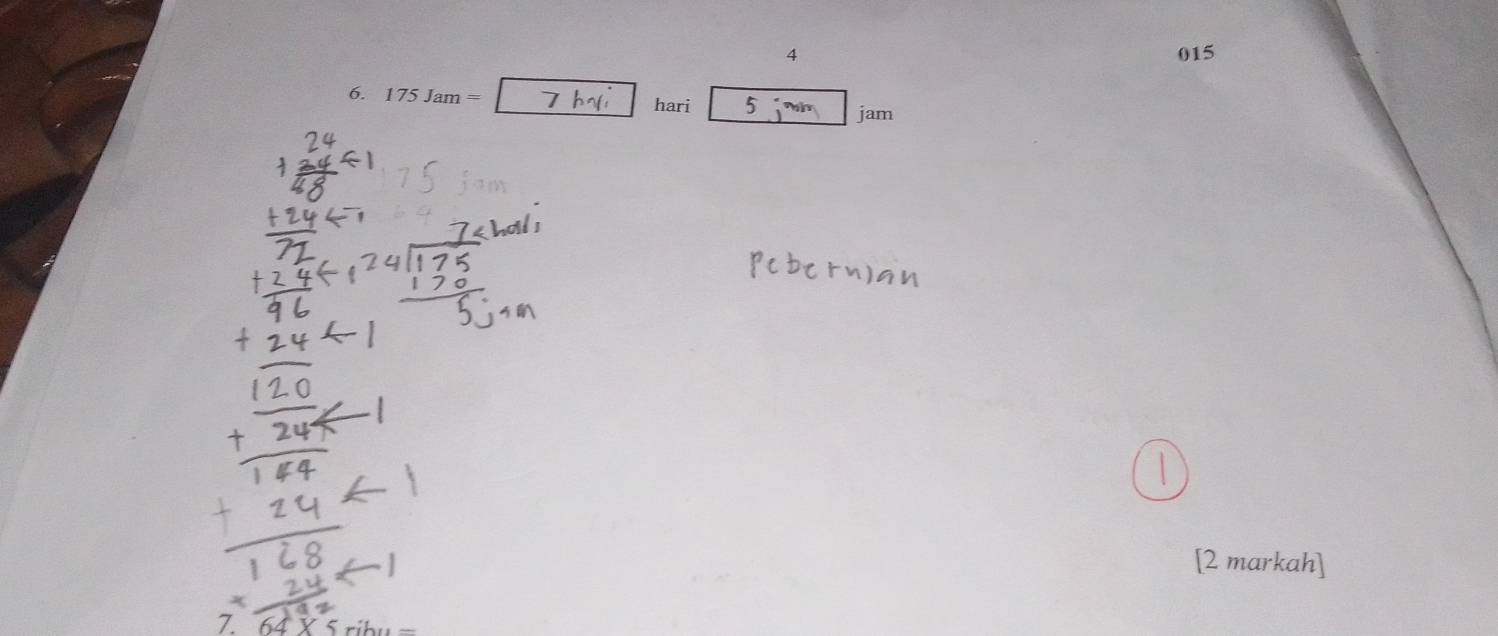 4
015
6. 175 Jam = 7 hari hari 5 jam jam
24
+ 24 ← 1
48
175 jam
+ 24 ← 1
72
7 ← hari
24 175
+ 24 ← 1
170
96
5 jam
pebernian
+ 24 ← 1
120
+ 24 ← 1
144
1
+ 24 ← 1
168
[2 markah]
+ 24 ← 1
192
7. 64 × 5 ribu =